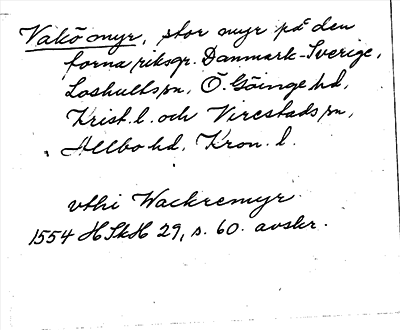 Vakö myr, stor myr på den
forna riksgr. Danmark-Sverige,
Loshults sn, Ö. Göinge hd,
Krist. l. och Virestads sn,
Allbo hd, Kron. l.
vthi Wackremyr
1554 HSkH 29, s. 60. avskr.